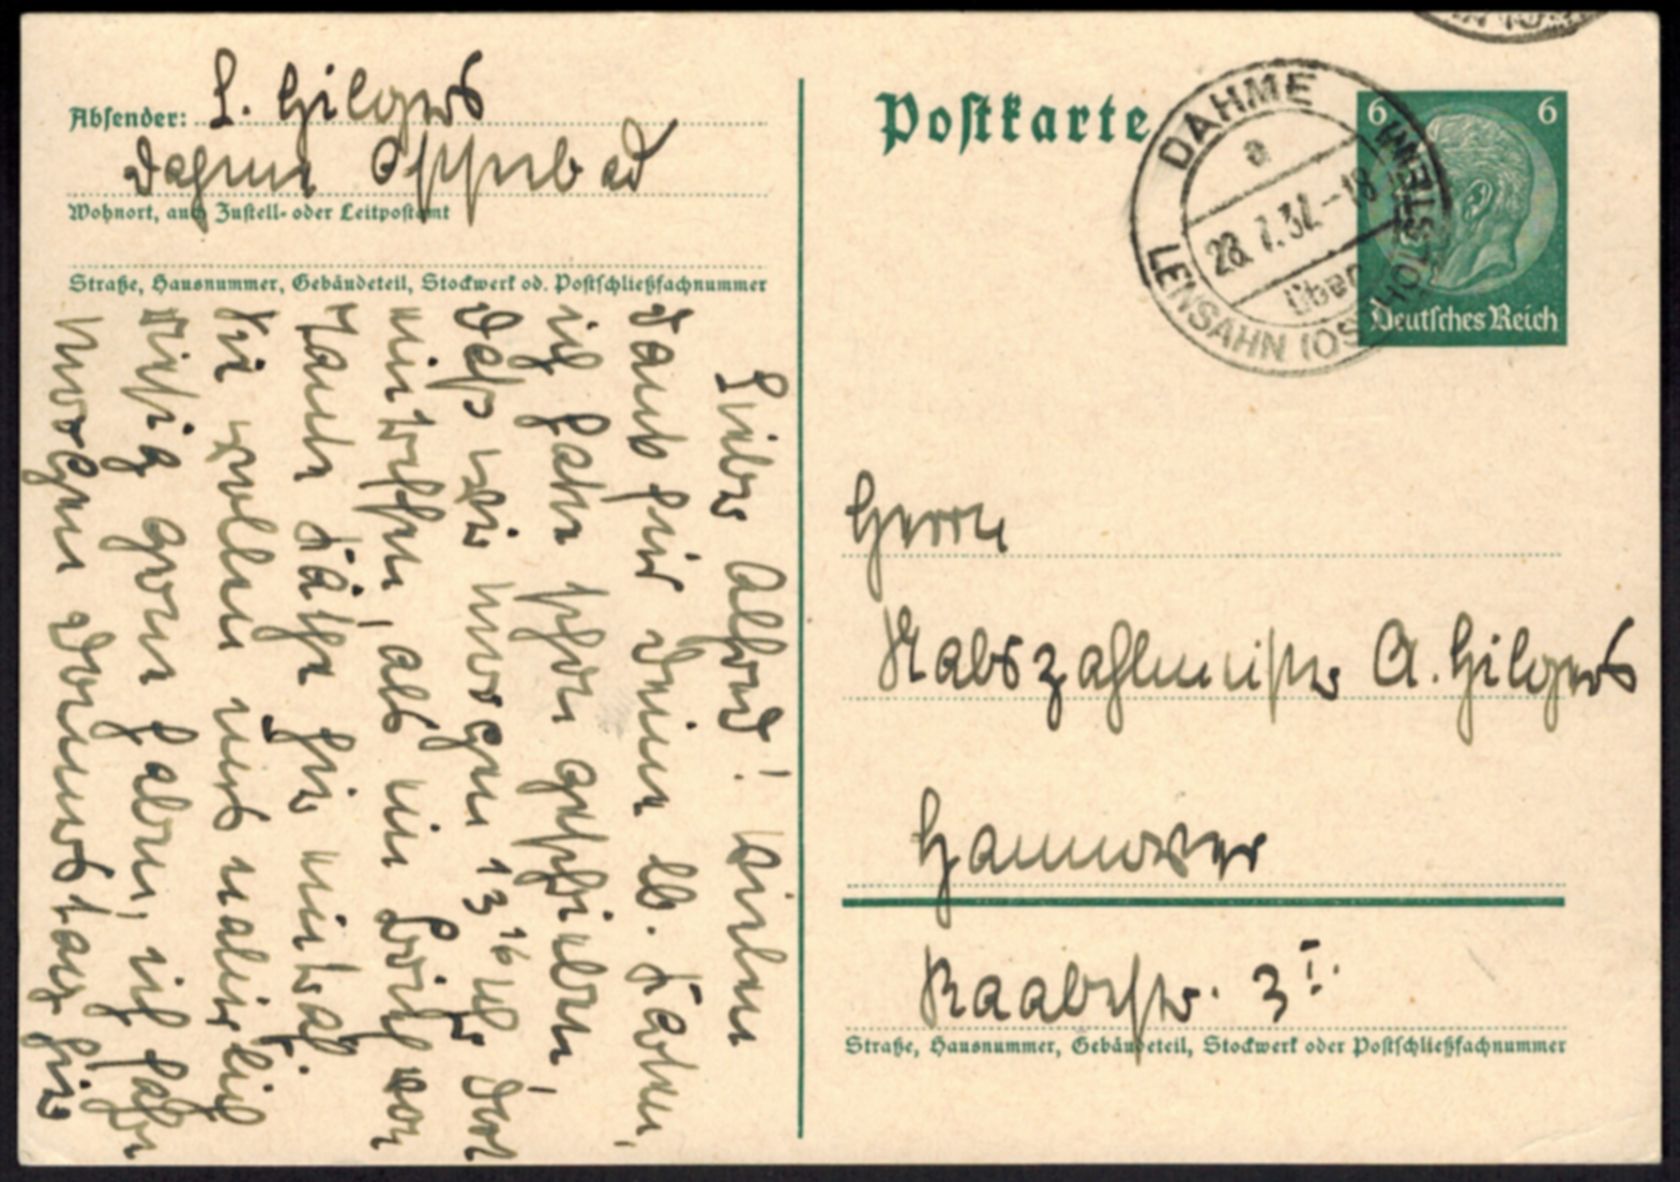 Absender: L. Hilgers
Dahme Ostseebad
Wohnort, auch Zustell- oder Leitpostamt
Straße, Hausnummer, Gebäudeteil, Stockwerk od. Postschließfachnummer
Postkarte
DAHME
a
28.7.37.-18
über
LENSAHN (OSTHOLSTEIN)
6 6
Deutsches Reich
Herrn
Stabszahlmeister A. Hilgers
Hannover
Raabestr. 3 I.
Straße, Hausnummer, Gebäudeteil, Stockwerk oder Postschließfachnummer
Lieber Alfred! Vielen
Dank für Deine lb. Karten,
ich hatte schon geschrieben,
daß wir morgen 13 16 Uhr dort
eintreffen, als ein Brief von
Tante Käthe hier eintraf.
Sie wollen uns natürlich
riesig gern haben, ich fahre
morgen Donnerstag hier